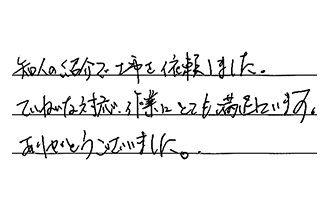 知人の紹介で工事を依頼しました。
ていねいな対応、作業にとても満足しています。
ありがとうございました。